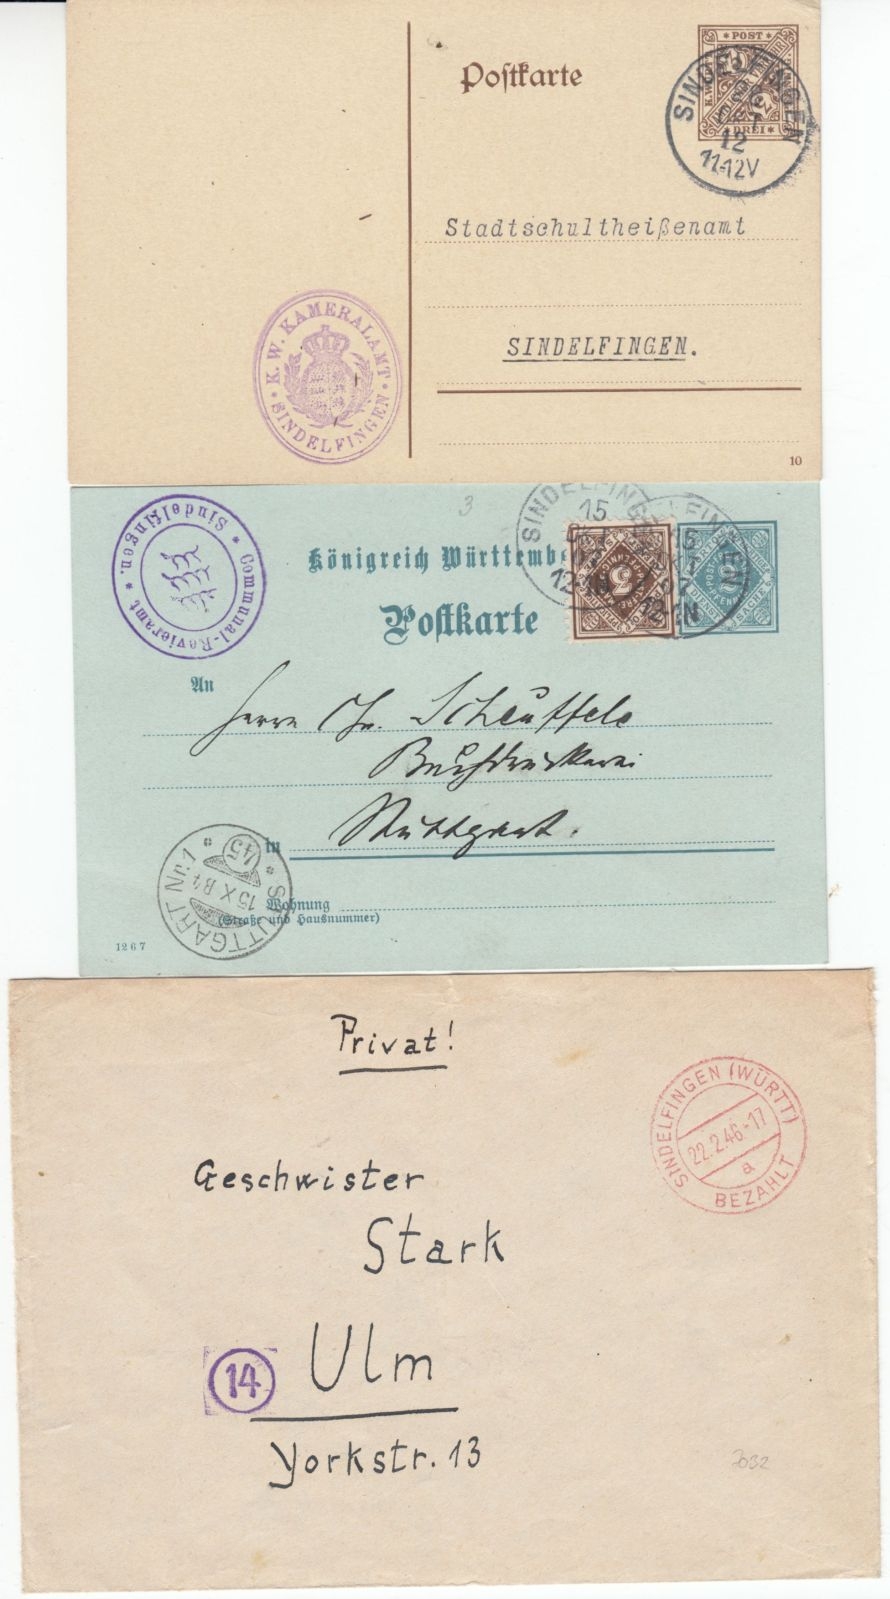 Postkarte
* POST *
* DREI *
SINDELFINGEN
12
11-12V
Stadtschultheißenamt
SINDELFINGEN.
K. W. KAMERALAMT
SINDELFINGEN
10
3
* Communal-Revieramt *
Sindelfingen.
SINDELFINGEN
15
Königreich Württembe
Postkarte
DIENSTSACHE
An
Herrn Chr. Scheuffele
Buchdruckerei
in
Stuttgart.
Wohnung
(Straße und Hausnummer)
* STUTTGART Nr. 1 *
15 X B4
45
1267
Privat!
SINDELFINGEN (WÜRTT)
22.2.46-17
a
BEZAHLT
Geschwister
Stark
14
Ulm
Yorkstr. 13
2032